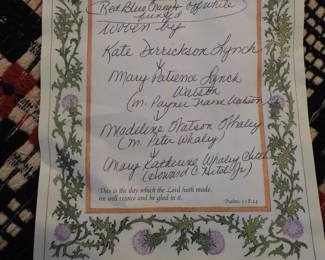 Red Blue Orange Off White
Woven by
Kate Derrickson Lynch
Mary Patience Lynch
Watson
(m. Payne Watson)
Madeline Watson Whaley
(m. Peter Whaley)
Mary Katherine Whaley
(Howard C.
This is the day which the Lord hath made,
we will rejoice and be glad in it.
Psalms 118:24